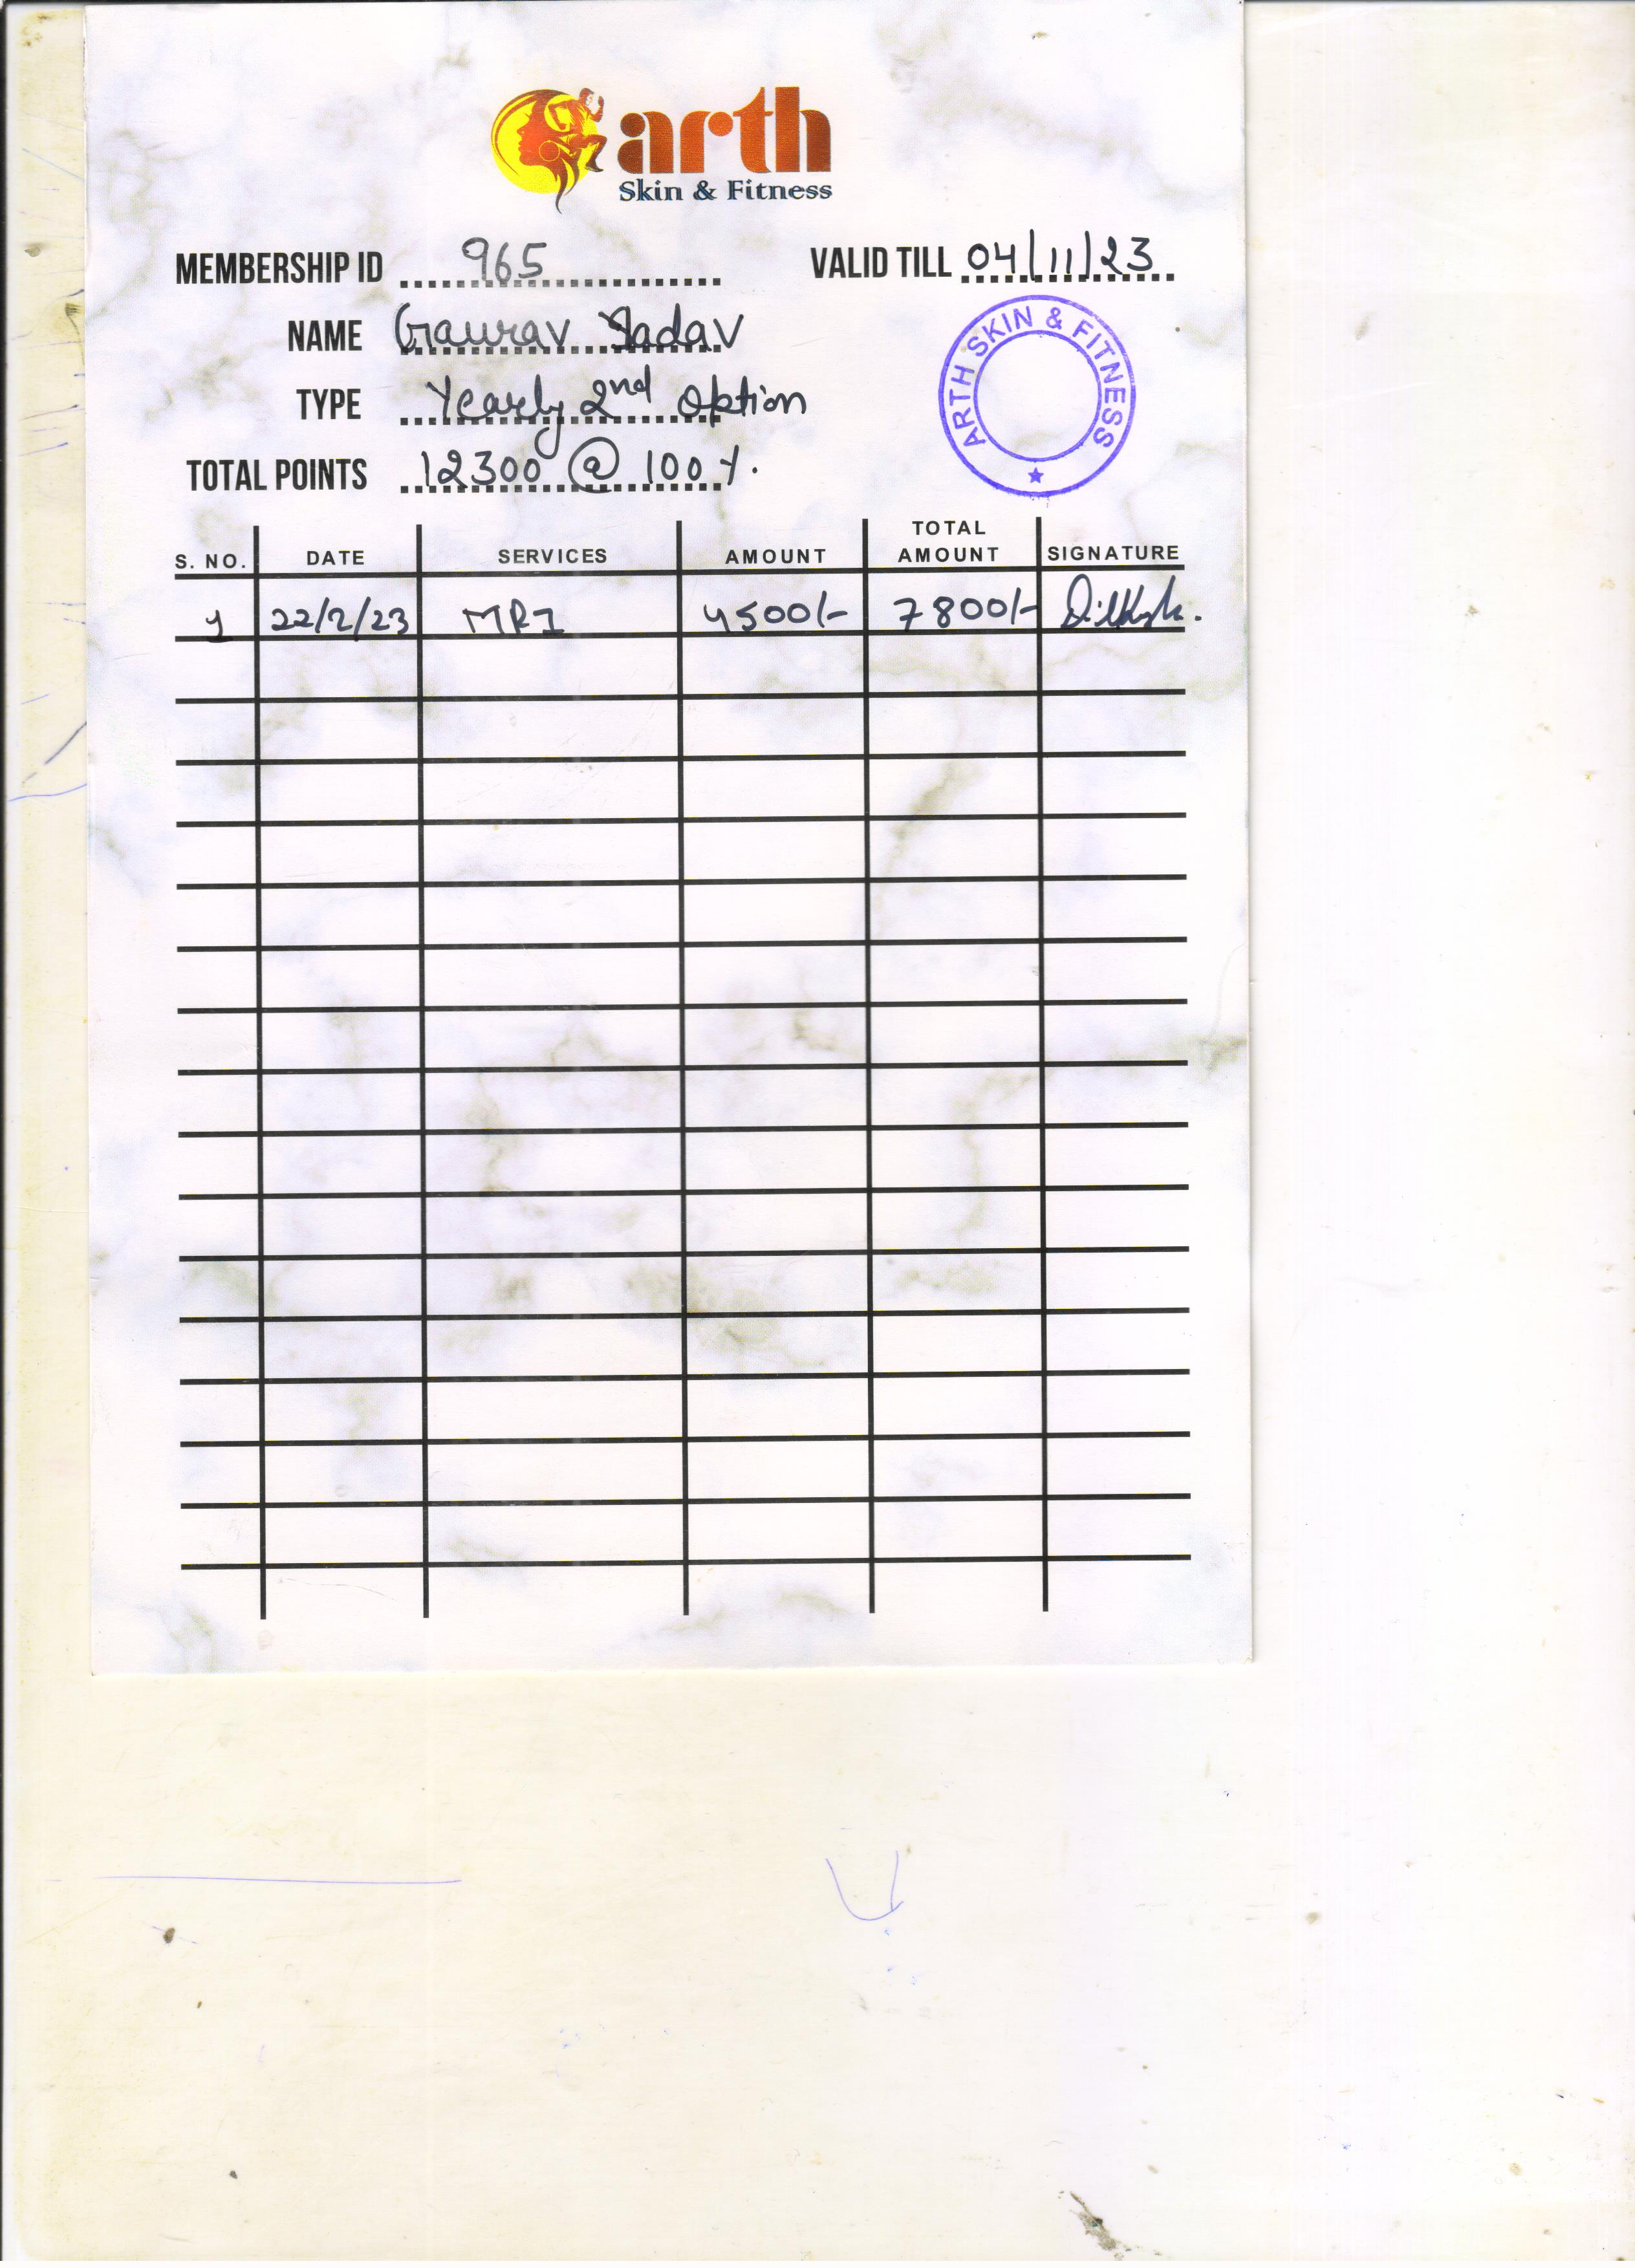 arth
Skin & Fitness
MEMBERSHIP ID 965 VALID TILL 04/11/23
NAME Gaurav Yadav
TYPE Yearly 2nd option
TOTAL POINTS 12300 @ 100%.
ARTH SKIN & FITNESS
S. NO. DATE SERVICES AMOUNT TOTAL AMOUNT SIGNATURE
1 22/2/23 MR1 4500/- 7800/-